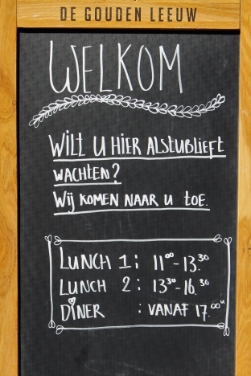 DE GOUDEN LEEUW
WELKOM
WILT U HIER ALSTUBLIEFT
WACHTEN?
WIJ KOMEN NAAR U TOE.
LUNCH 1: 11⁰⁰-13.³⁰
LUNCH 2: 13³⁰-16³⁰
DINER : VANAF 17.⁰⁰